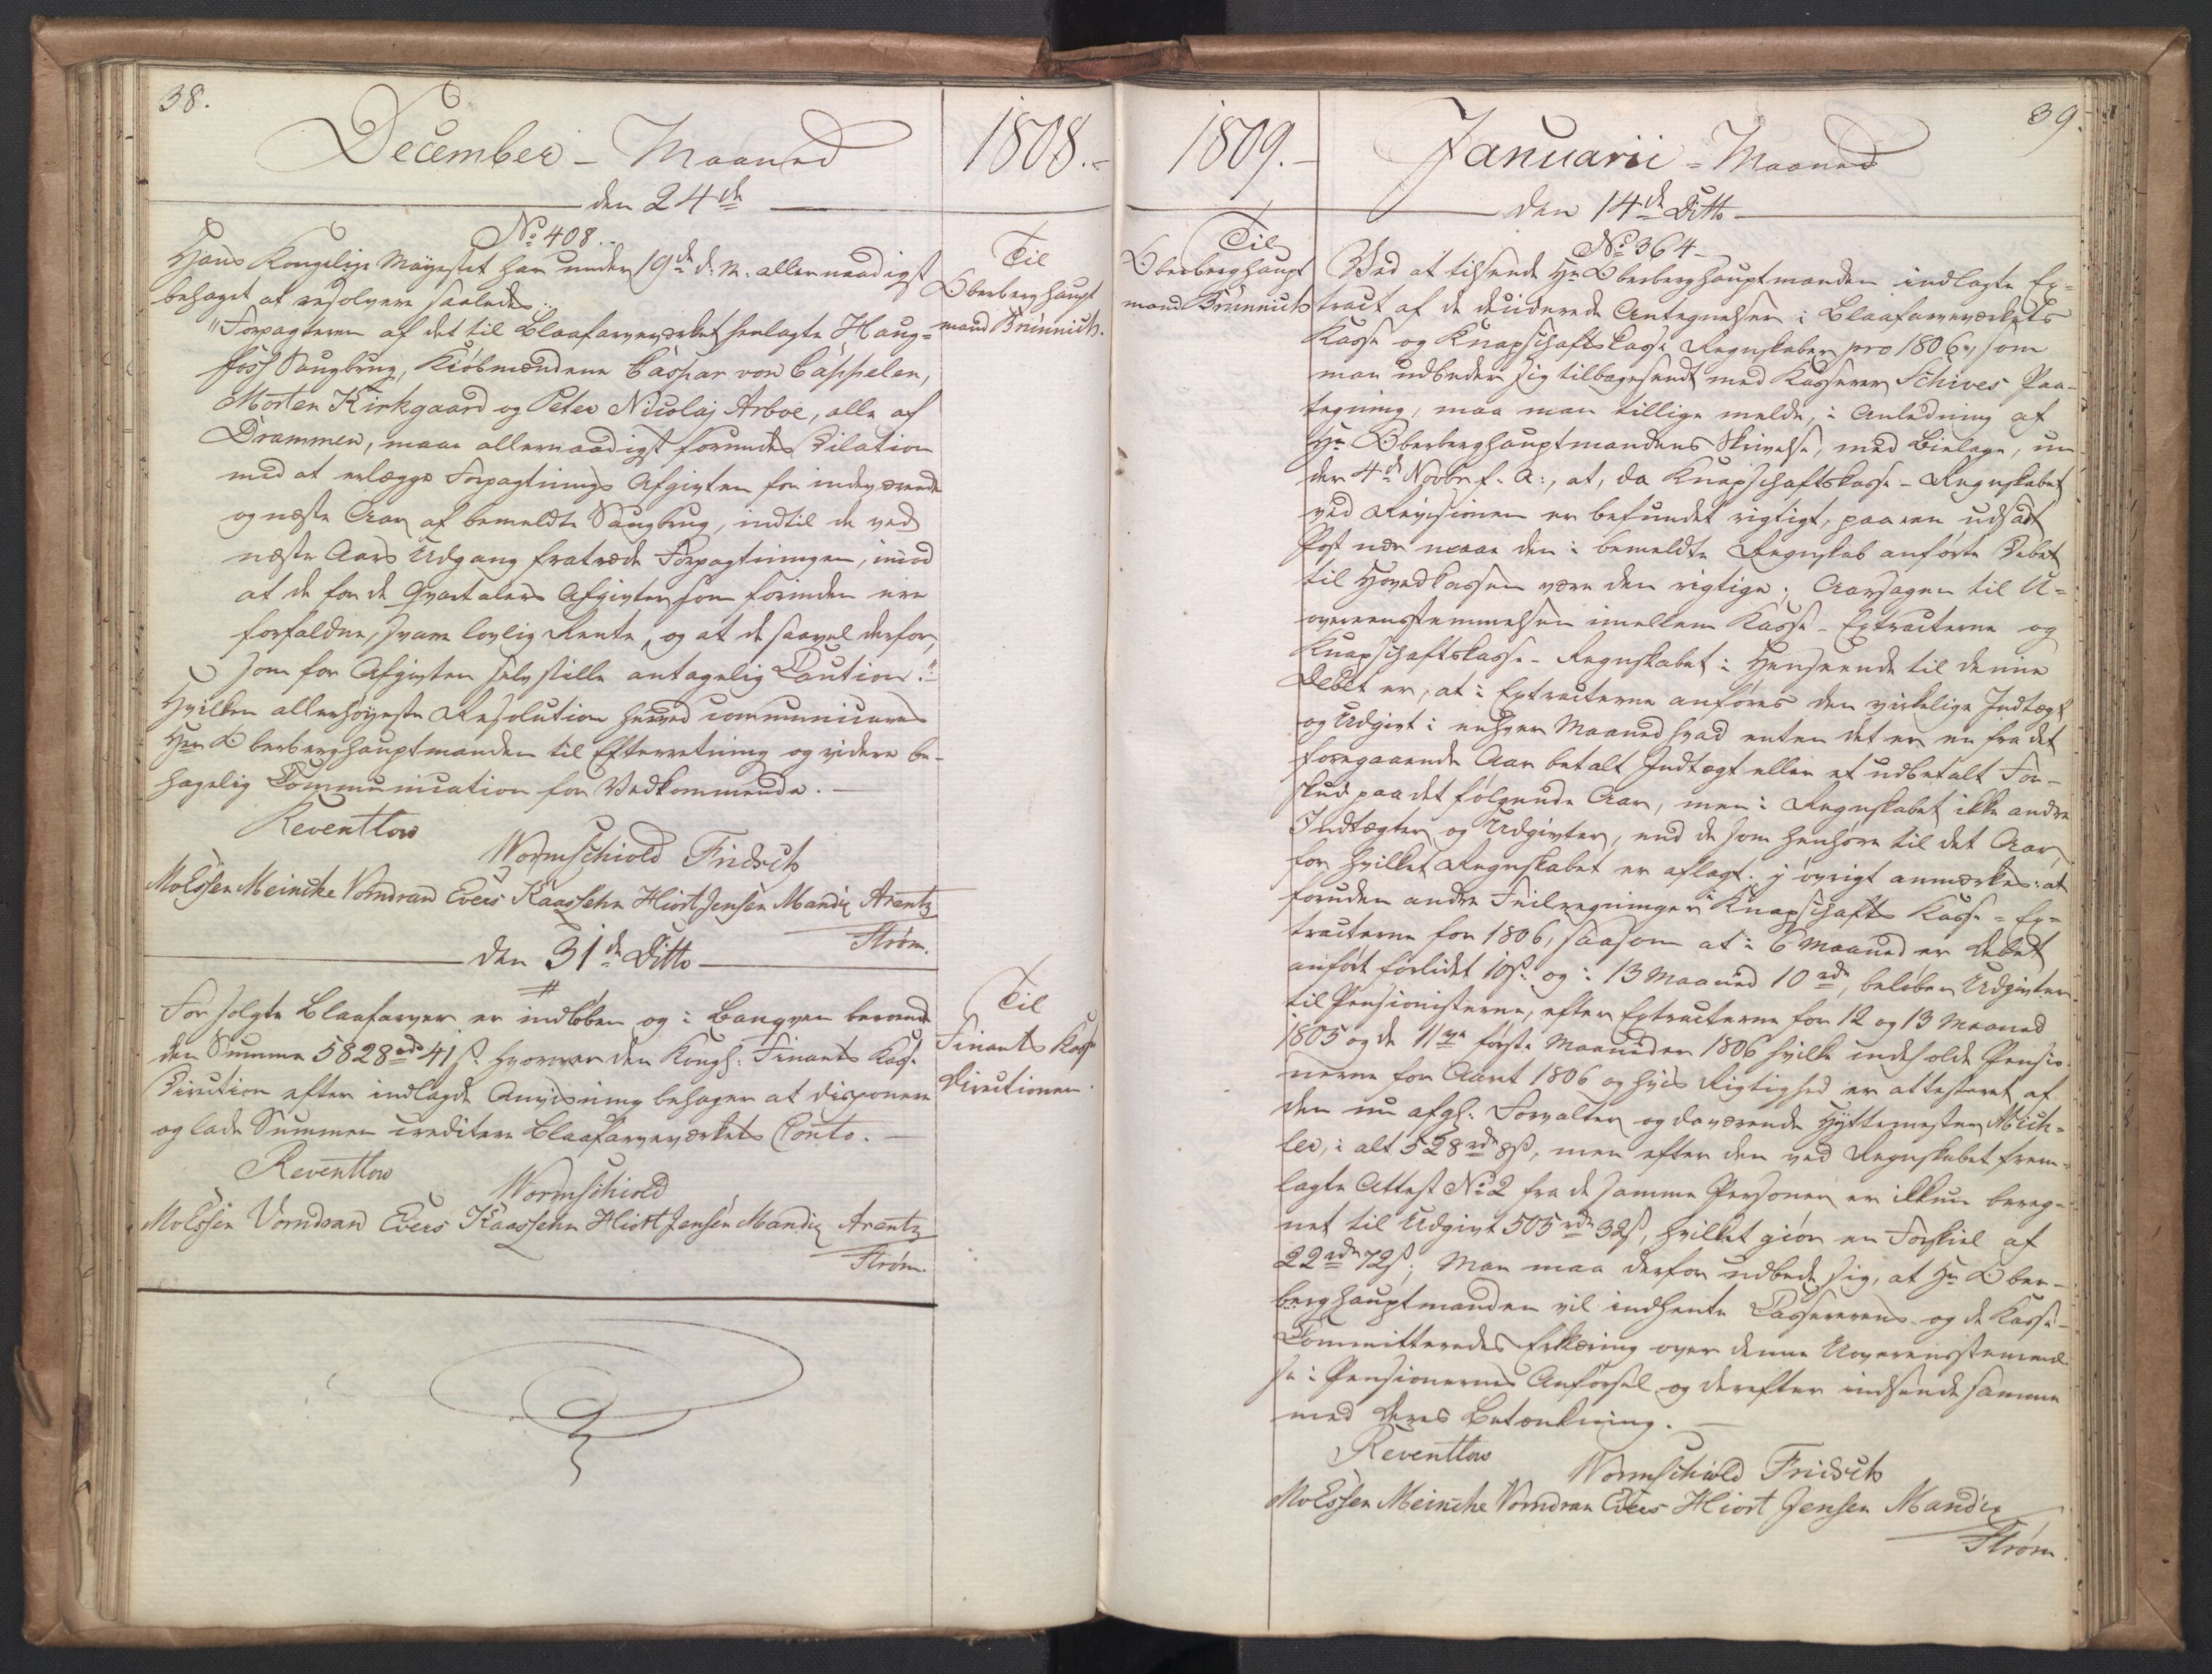 38.
December - Maaned
1808.-
den 24de
No 408.
Til
Oberberghaupt
mand Brünnich.
Hans Kongelige Mayestet har under 19de d: M. allernaadigst
behaget at resolvere saaledes:
"Forpagterne af det til Blaafarveværket henlagte Haug-
foss Saugbrug, Kiøbmændene Caspar von Cappelen,
Morten Kirkgaard og Peter Nicolaj Arboe, alle af
Drammen, maae allernaadigst forundes Dilation
med at erlægge Forpagtnings Afgivten for indeværende
og næste Aar af bemeldte Saugbrug, indtil de ved
næste Aars Udgang fratræde Forpagtningen, imod
at de for de Qvartalers Afgivter som forinden ere
forfaldne, svare lovlig Rente, og at de saavel derfor,
som for Afgivten selv stille antagelig Caution."
Hvilken allerhøyeste Resolution herved communiceres
Hrr Oberberghauptmanden til Efterretning og videre be-
hagelig Communication for Vedkommende. -
Reventlow
Wormschiold Fridsch
MvEssen Meincke Vorndran Evers Kaassehn Hiort Jensen Mandix Arentz
Strøm.
den 31de Ditto
#
Til
Finants Kasse
Directionen.
For solgte Blaafarver er indløben og i Banqven beroende
den Summa 5828rd 41ß. hvorover den Kongl: Finants Kasse
Direction efter indlagde Anviisning behager at disponere
og lade Summen creditere Blaafarveværkets Conto. -
Reventlow
Wormschiold
MvEssen Vorndran Evers Kaassehn Hiort Jensen Mandix Arentz
Strøm.
39.
1809.-
Januarii - Maaned
den 14de Ditto
No 364-
Til
Oberberghaupt
mand Brünnich
Ved at tilsende Hr Oberberghauptmanden indlagte Ex-
tract af de deciderede Antegnelser i Blaafarveværkets
Kasse og Knapschaftskasse Regnskaber pro 1806, som
man udbeder sig tilbagesendt med Kasserer Schives Paa-
tegning, maa man tillige melde, i Anledning af
Hr Oberberghauptmandens Skrivelse, med Bielage, un
der 4de Novbr f. A:, at, da Knapschaftskasse-Regnskabet
ved Revisionen er befundet rigtigt, paa een udsadt
Post nær maae den i bemeldte Regnskab anførte Debet
til Hovedkassen være den rigtige; Aarsagen til U-
overeensstemmelsen imellem Kasse-Extracterne og
Knapschaftskasse-Regnskabet i Henseende til denne
Debet er, at i Extracterne anføres den virkelige Indtægt
og Udgivt i enhver Maaned hvad enten det er en fra det
foregaaende Aar betalt Indtægt eller et udbetalt For-
skud paa det følgende Aar, men i Regnskabet ikke andre
Indtægter og Udgivter, end de som henhøre til det Aar,
for hvilket Regnskabet er aflagt. j øvrigt anmærkes: at
foruden andre Feilregninger i Knapschafts Kasse-Ex-
tracterne for 1806, saasom at i 6 Maaned er Debet
anført forlidet 10ß. og i 13 Maaned 10rd, beløber Udgivten
til Pensionisterne, efter Extracterne for 12 og 13 Maaned
1805 og de 11te første Maaneder 1806 hvilke indeholde Pensio-
nerne for Aaret 1806 og hvis Rigtighed er attesteret af
den nu afgl: Forvalter og daværende Hyttemester Mich-
let, i alt 528rd 8ß, men efter den ved Regnskabet frem-
lagte Attest No 2 fra de samme Personer er ikkun bereg-
net til Udgivt 505rd 32ß, hvilket giør en Forskiel af
22rd 72ß; Man maa derfor udbede sig, at Hr Ober-
berghauptmanden vil indhente Cassererens og de Kasse-
Committeredes Erklæring over denne Uovereensstemmel-
se i Pensionernes Anførsel og derefter indsende samme
med Deres Betænkning. -
Reventlow
Wormschiold Fridsch
MvEssen Meincke Vorndran Evers Hiort Jensen Mandix
Strøm.